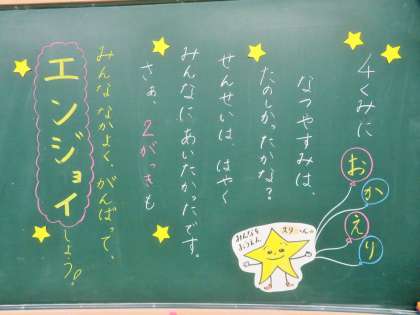 4くみに
おかえり
なつやすみは、
たのしかったかな？
せんせいは、はやく
みんなにあいたかったです。
さぁ、2がっきも
みんななかよく、がんばって、
エンジョイしよう！
みんなを